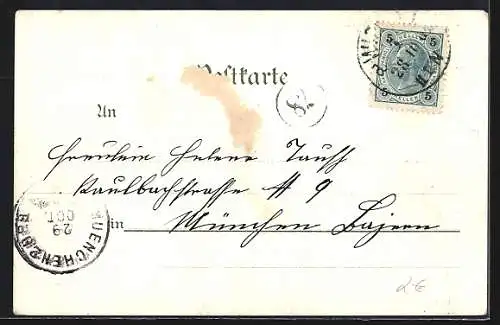 Postkarte
5 5
28
5 5
82
An
Fräulein Helene Tauff
Kaulbachstrasse # 9
in München Bayern
MUENCHEN
29
OCT
2€